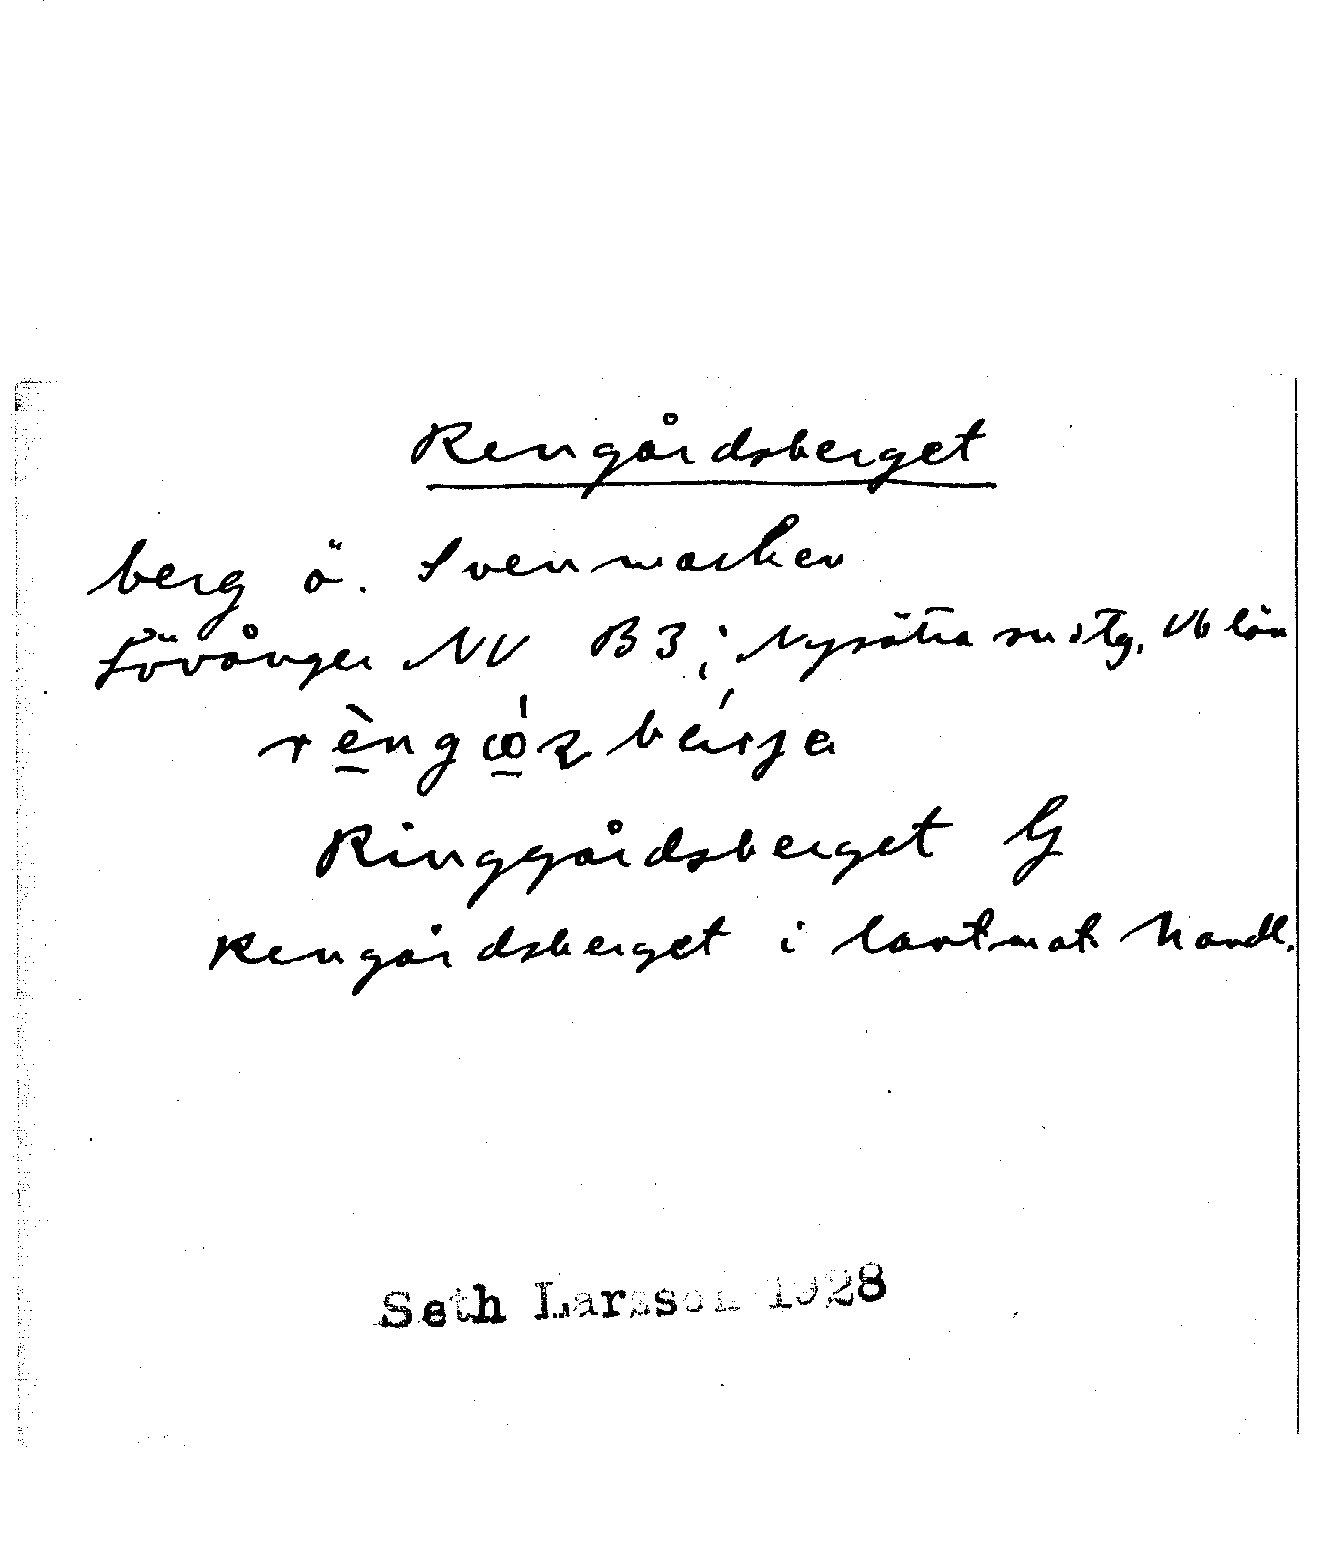 Rengårdsberget
berg ö. Svenmarken
Lövånger NV B3; Nysätra sn o tg, Vb län
Ringgårdsberget G
Rengårdsberget i lantmät handl.
Seth Larsson 1928